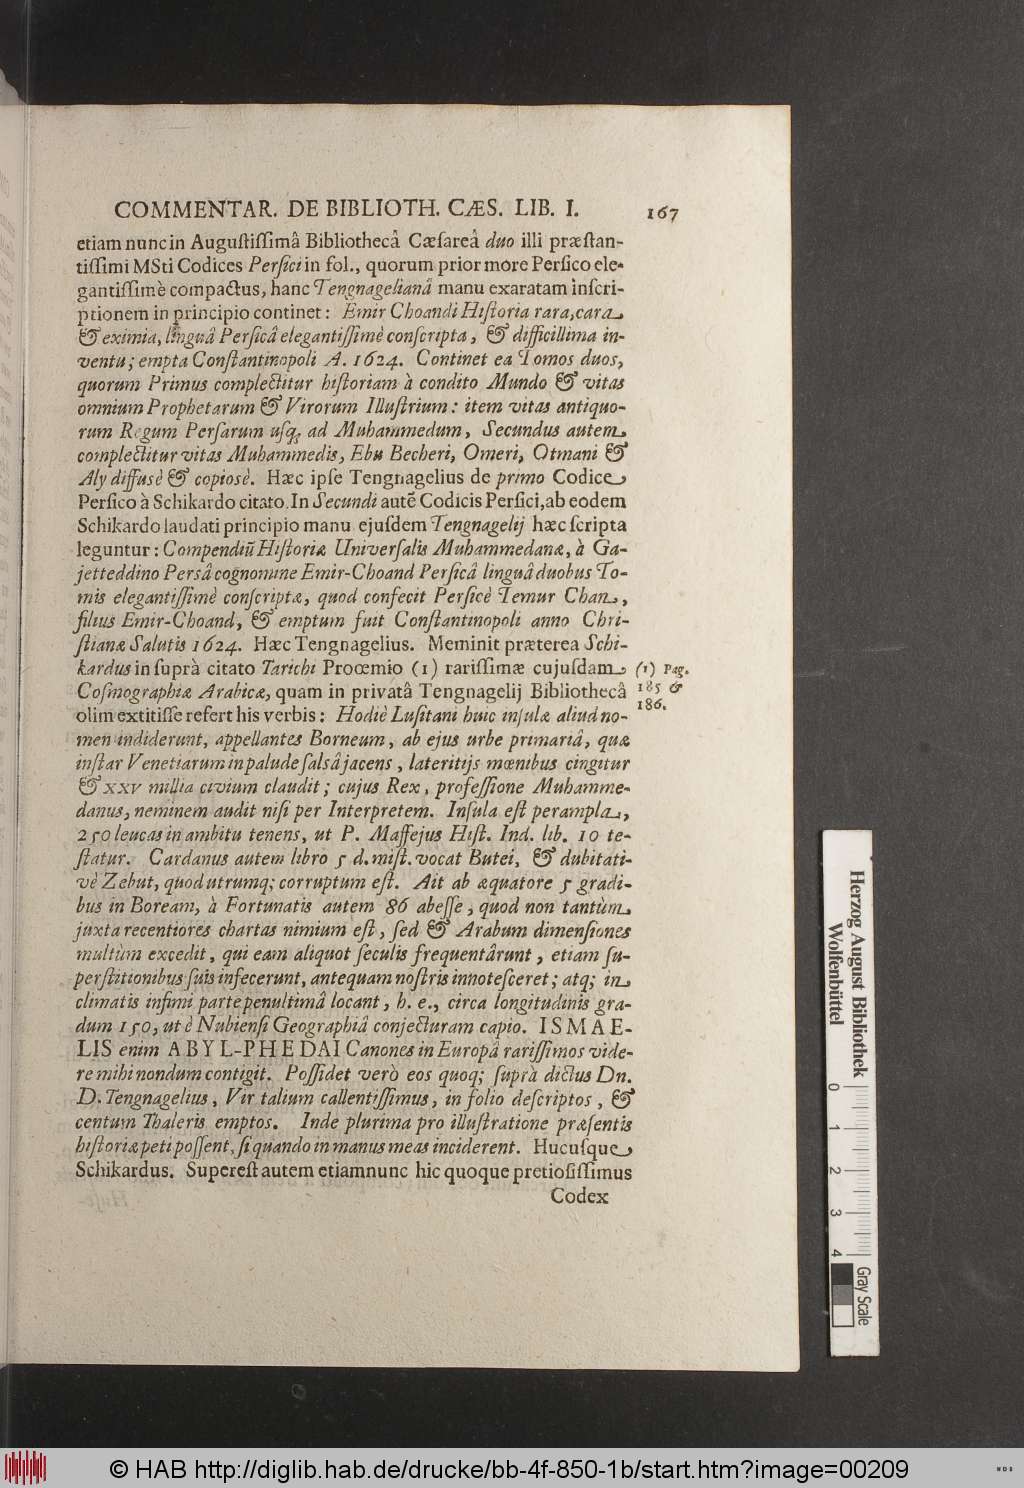 COMMENTAR. DE BIBLIOTH. CÆS. LIB. I. 167
etiam nunc in Auguſtiſſimâ Bibliothecâ Cæſareâ duo illi præſtan-
tiſſimi MSti Codices Perſici in fol., quorum prior more Perſico ele-
gantiſſimè compactus, hanc Tengnagelianâ manu exaratam inſcri-
ptionem in principio continet: Emir Choandi Hiſtoria rara, cara
& eximia, linguâ Perſicâ elegantiſſimè conſcripta, & difficillima in-
ventu; empta Conſtantinopoli A. 1624. Continet ea Tomos duos,
quorum Primus complectitur hiſtoriam à condito Mundo & vitas
omnium Prophetarum & Virorum Illuſtrium: item vitas antiquo-
rum Regum Perſarum uſq; ad Muhammedum, Secundus autem
complectitur vitas Muhammedis, Ebu Becheri, Omeri, Otmani &
Aly diffusè & copiosè. Hæc ipſe Tengnagelius de primo Codice
Perſico à Schikardo citato. In Secundi autẽ Codicis Perſici, ab eodem
Schikardo laudati principio manu ejuſdem Tengnagelij hæc ſcripta
leguntur: Compendiũ Hiſtoriæ Univerſalis Muhammedanæ, à Ga-
jetteddino Persâ cognomine Emir-Choand Perſicâ linguâ duobus To-
mis elegantiſſimè conſcriptæ, quod confecit Perſicè Temur Chan,
filius Emir-Choand, & emptum fuit Conſtantinopoli anno Chri-
ſtianæ Salutis 1624. Hæc Tengnagelius. Meminit præterea Schi-
kardus in ſuprà citato Tarichi Procœmio (1) rariſſimæ cujuſdam
(1) Pag.
Coſmographiæ Arabicæ, quam in privatâ Tengnagelij Bibliothecâ
185 &
186.
olim extitiſſe refert his verbis: Hodiè Luſitani huic inſulæ aliud no-
men indiderunt, appellantes Borneum, ab ejus urbe primariâ, quæ
inſtar Venetiarum in palude ſalsâ jacens, lateritijs mœnibus cingitur
& XXV millia civium claudit; cujus Rex, profeſſione Muhamme-
danus, neminem audit niſi per Interpretem. Inſula eſt perampla,
250 leucas in ambitu tenens, ut P. Maffejus Hiſt. Ind. lib. 10 te-
ſtatur. Cardanus autem libro 5 d. miſt. vocat Butei, & dubitati-
vè Zebut, quod utrumq; corruptum eſt. Ait ab æquatore 5 gradi-
bus in Boream, à Fortunatis autem 86 abeſſe, quod non tantùm
juxta recentiores chartas nimium eſt, ſed & Arabum dimenſiones
multùm excedit, qui eam aliquot ſeculis frequentârunt, etiam ſu-
perſtitionibus ſuis infecerunt, antequam noſtris innoteſceret; atq; in
climatis infimi parte penultimâ locant, h. e., circa longitudinis gra-
dum 150, ut è Nubienſi Geographiâ conjecturam capio. ISMAE-
LIS enim ABYL-PHEDAI Canones in Europâ rariſſimos vide-
re mihi nondum contigit. Poſſidet verò eos quoq; ſuprà dictus Dn.
D. Tengnagelius, Vir talium callentiſſimus, in folio deſcriptos, &
centum Thaleris emptos. Inde plurima pro illuſtratione præſentis
hiſtoriæ peti poſſent, ſi quando in manus meas inciderent. Hucuſque
Schikardus. Supereſt autem etiamnunc hic quoque pretioſiſſimus
Codex
Herzog August Bibliothek
Wolfenbüttel
0 1 2 3 4
Gray Scale
© HAB http://diglib.hab.de/drucke/bb-4f-850-1b/start.htm?image=00209